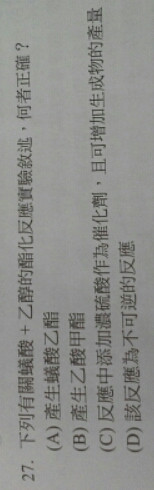 27. 下列有關蟻酸＋乙醇的酯化反應實驗敘述，何者正確？
(A) 產生蟻酸乙酯
(B) 產生乙酸甲酯
(C) 反應中添加濃硫酸作為催化劑，且可增加生成物的產量
(D) 該反應為不可逆的反應